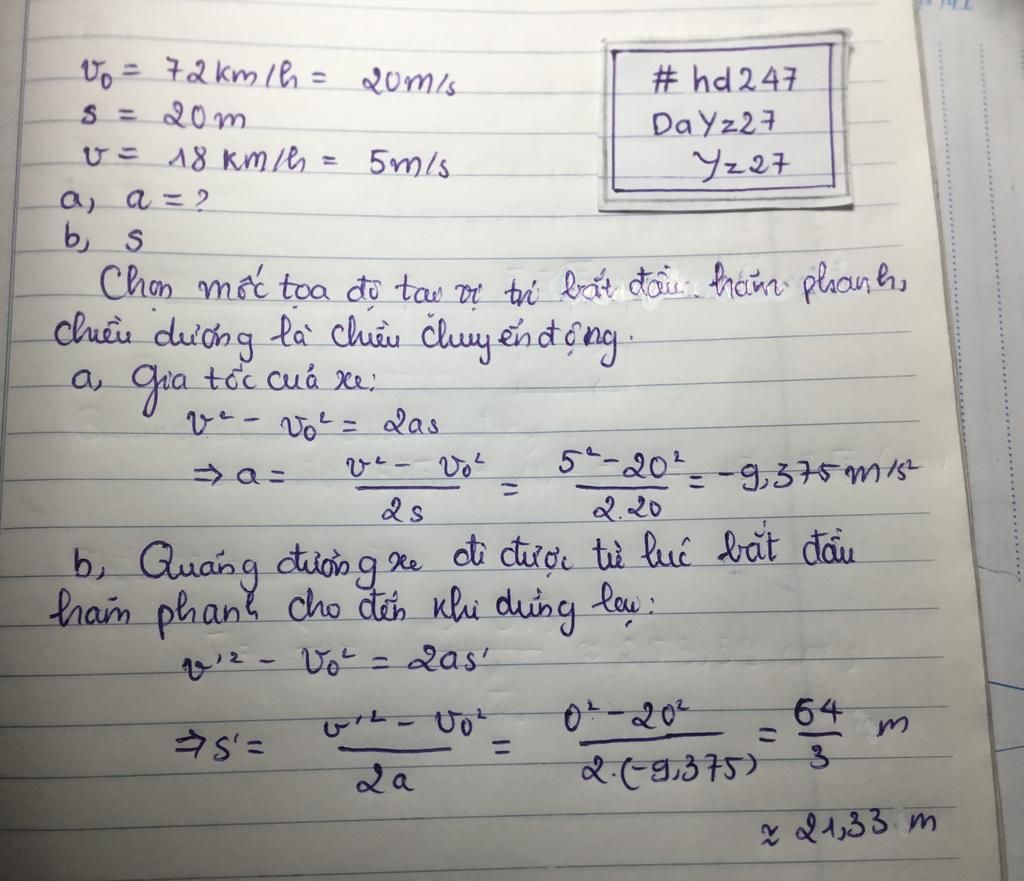 v₀ = 72 km/h = 20m/s
s = 20m
v = 18 km/h = 5m/s
a, a = ?
b, s
# hd247
DaYz27
Yz27
Chọn mốc tọa độ tại vị trí bắt đầu hãm phanh,
chiều dương là chiều chuyển động.
a, Gia tốc của xe:
v² - v₀² = 2as
⇒ a = (v² - v₀²)/(2s) = (5² - 20²)/(2.20) = -9,375 m/s²
b, Quãng đường xe đi được từ lúc bắt đầu
hãm phanh cho đến khi dừng lại:
v'² - v₀² = 2as'
⇒ s' = (v'² - v₀²)/(2a) = (0² - 20²)/(2.(-9,375)) = 64/3 m
≈ 21,33 m